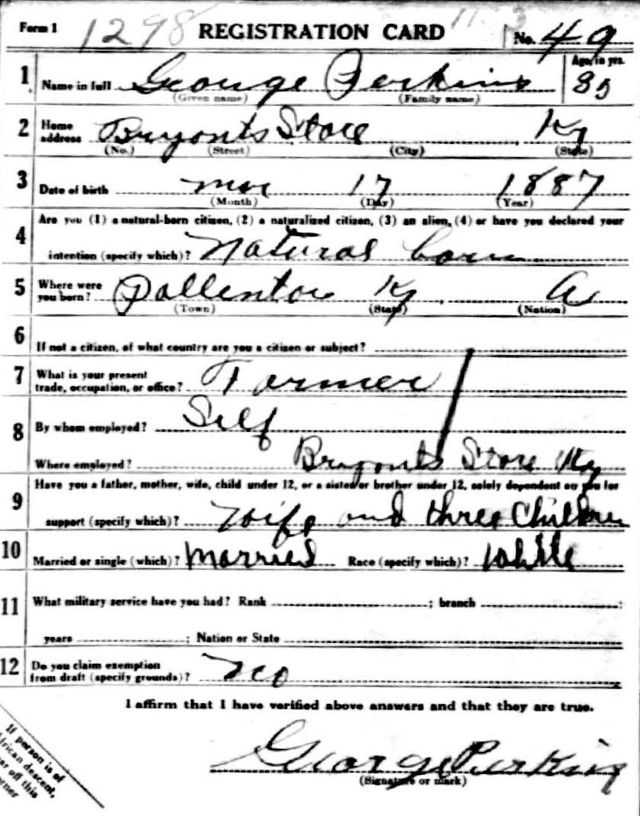 Form 1 1298 REGISTRATION CARD No. 49
1 Name in full George Perkins Age, in yrs. 30
(Given name) (Family name)
2 Home address Bryonts Store Ky
(No.) (Street) (City) (State)
3 Date of birth Mar 17 1887
(Month) (Day) (Year)
4 Are you (1) a natural-born citizen, (2) a naturalized citizen, (3) an alien, (4) or have you declared your
intention (specify which)? Natural born
5 Where were you born? Ky A
(Town) (State) (Nation)
6 If not a citizen, of what country are you a citizen or subject?
7 What is your present trade, occupation, or office? Farmer
8 By whom employed? Self
Where employed? Bryonts Store Ky
9 Have you a father, mother, wife, child under 12, or a sister or brother under 12, solely dependent on you for
support (specify which)? Wife and three Children
10 Married or single (which)? Married Race (specify which)? White
11 What military service have you had? Rank ; branch
years ; Nation or State
12 Do you claim exemption from draft (specify grounds)? No
I affirm that I have verified above answers and that they are true.
George Perkins
(Signature or mark)
If person is of
African descent,
tear off this
corner